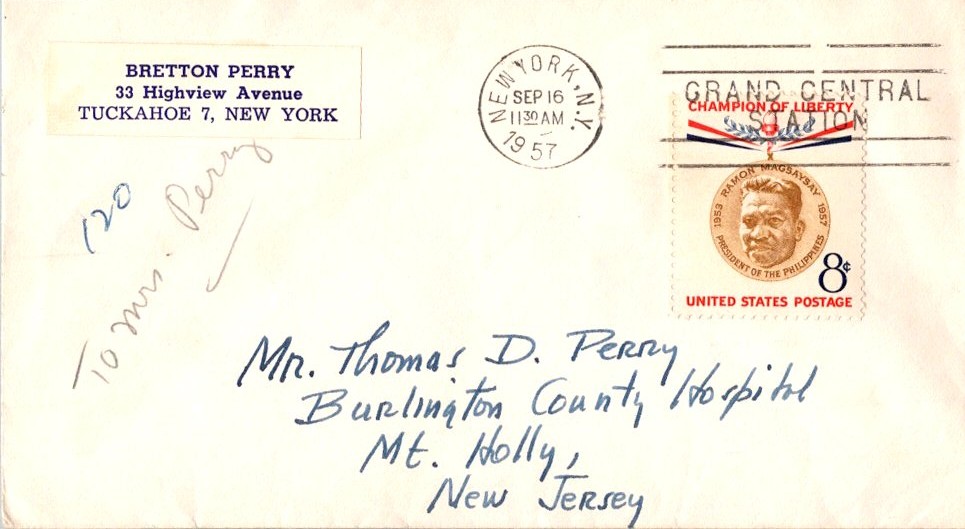 BRETTON PERRY
33 Highview Avenue
TUCKAHOE 7, NEW YORK
NEW YORK, N.Y.
SEP 16
11 30 AM
1957
GRAND CENTRAL
STATION
CHAMPION OF LIBERTY
RAMON MAGSAYSAY
1953 1957
PRESIDENT OF THE PHILIPPINES
8¢
UNITED STATES POSTAGE
120
To Mrs. Perry
Mr. Thomas D. Perry
Burlington County Hospital
Mt. Holly,
New Jersey